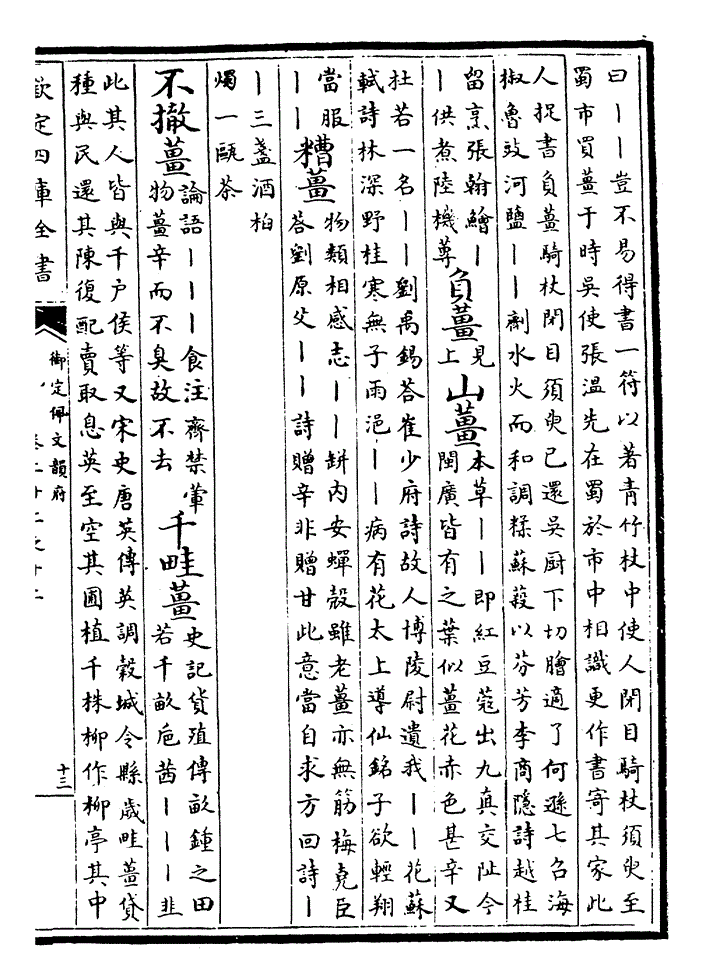 曰｜｜豈不易得書一符以著青竹杖中使人閉目騎杖須臾至
蜀市買薑于時吳使張溫先在蜀於市中相識更作書寄其家此
人捉書負薑騎杖閉目須臾已還吳厨下切膾適了何遜七召海
椒魯豉河鹽｜｜劑水火而和調糅蘇蔱以芬芳李商隱詩越桂
留烹張翰鱠｜
｜供煮陸機蓴
負薑
見
上
山薑
本草｜｜即紅豆蔻出九真交阯今
閩廣皆有之葉似薑花赤色甚辛又
杜若一名｜｜劉禹錫荅崔少府詩故人博陵尉遺我｜｜花蘇
軾詩林深野桂寒無子雨浥｜｜病有花太上導仙銘子欲輕翔
當服
｜｜
糟薑
物類相感志｜｜缾内安蟬殼雖老薑亦無筋梅堯臣
荅劉原父｜｜詩贈辛非贈甘此意當自求方回詩｜
｜三盞酒柏
燭一甌茶
不撤薑
論語｜｜｜食注齊禁葷
物薑辛而不臭故不去
千畦薑
史記貨殖傳畝鍾之田
若千畝巵茜｜｜｜韭
此其人皆與千户侯等又宋史唐英傳英調穀城令縣歲畦薑貸
種與民還其陳復配賣取息英至空其圃植千株柳作柳亭其中
欽定四庫全書
御定佩文韻府
卷二十二之十二
十三